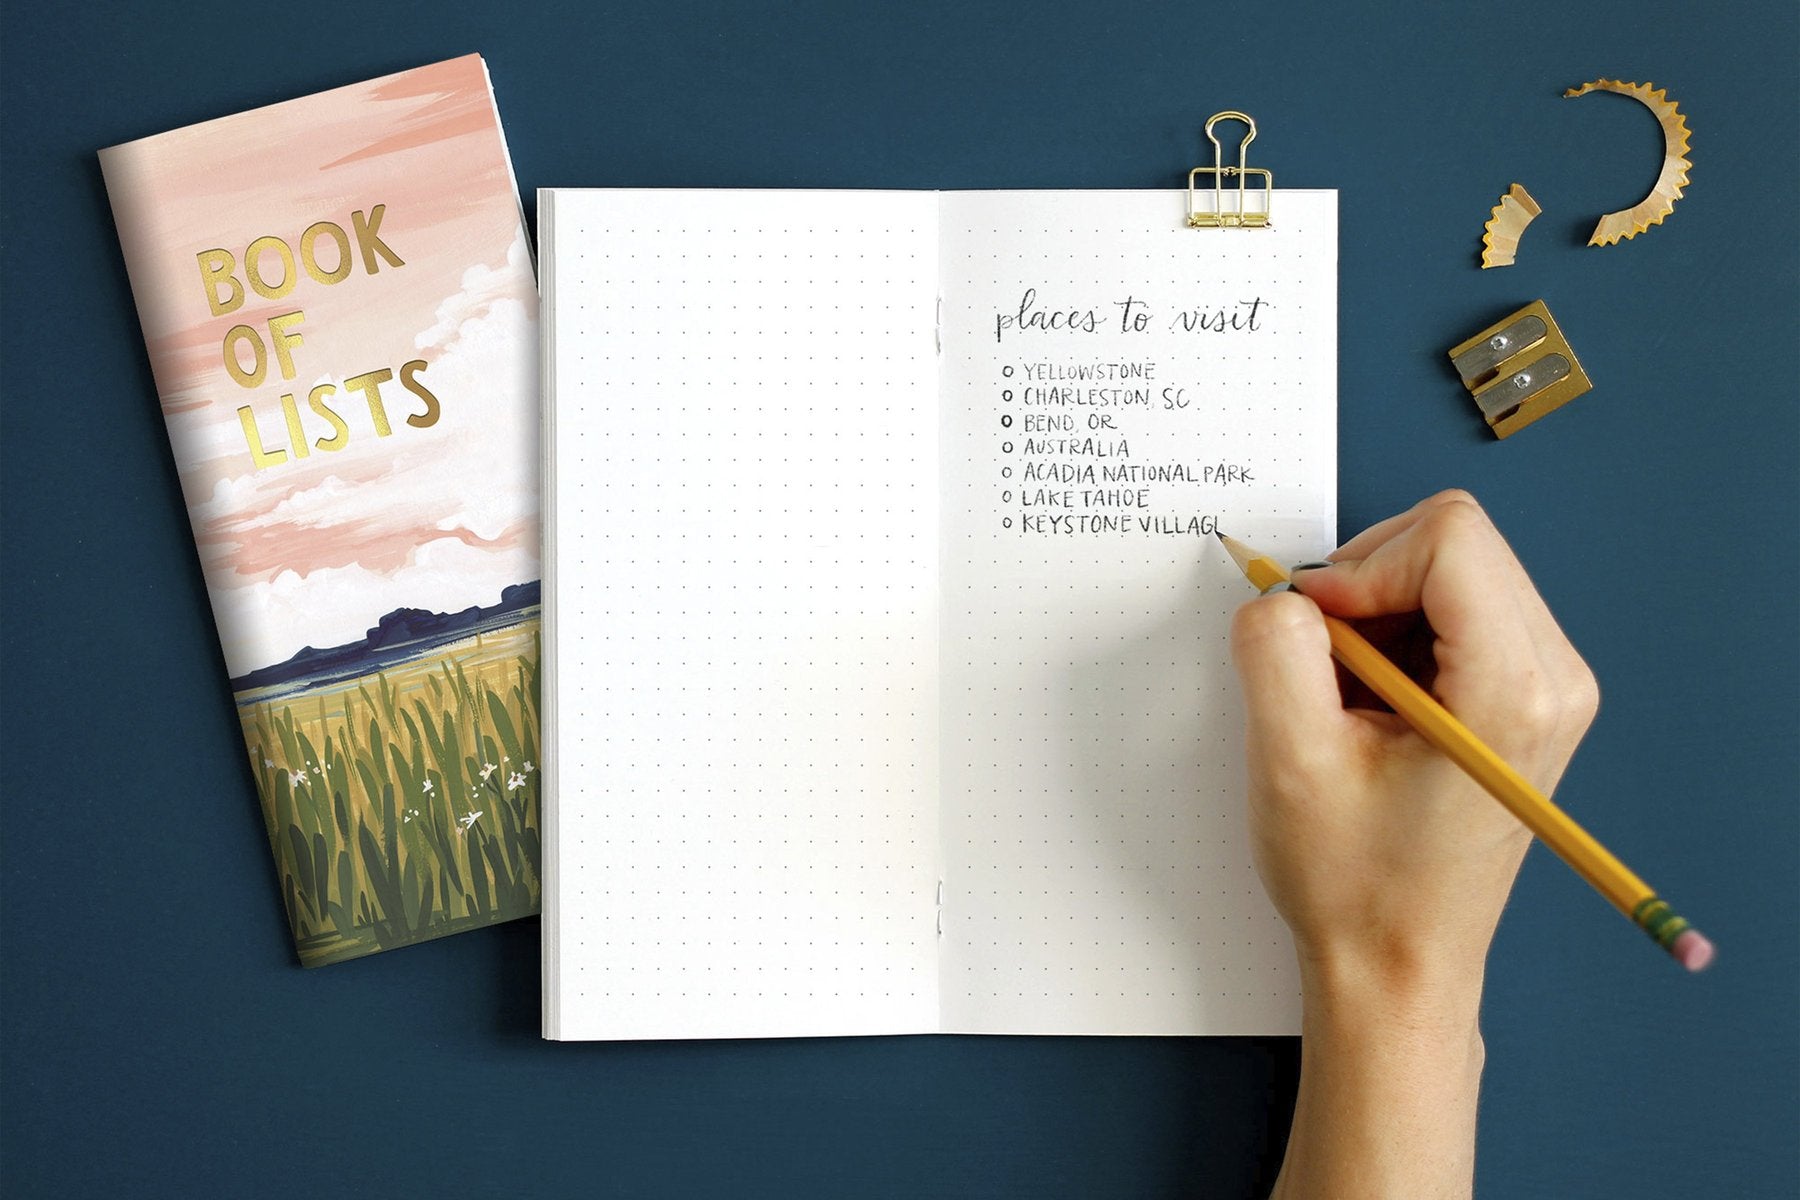 BOOK
OF
LISTS
places to visit
YELLOWSTONE
CHARLESTON, SC
BEND, OR
AUSTRALIA
ACADIA NATIONAL PARK
LAKE TAHOE
KEYSTONE VILLAG